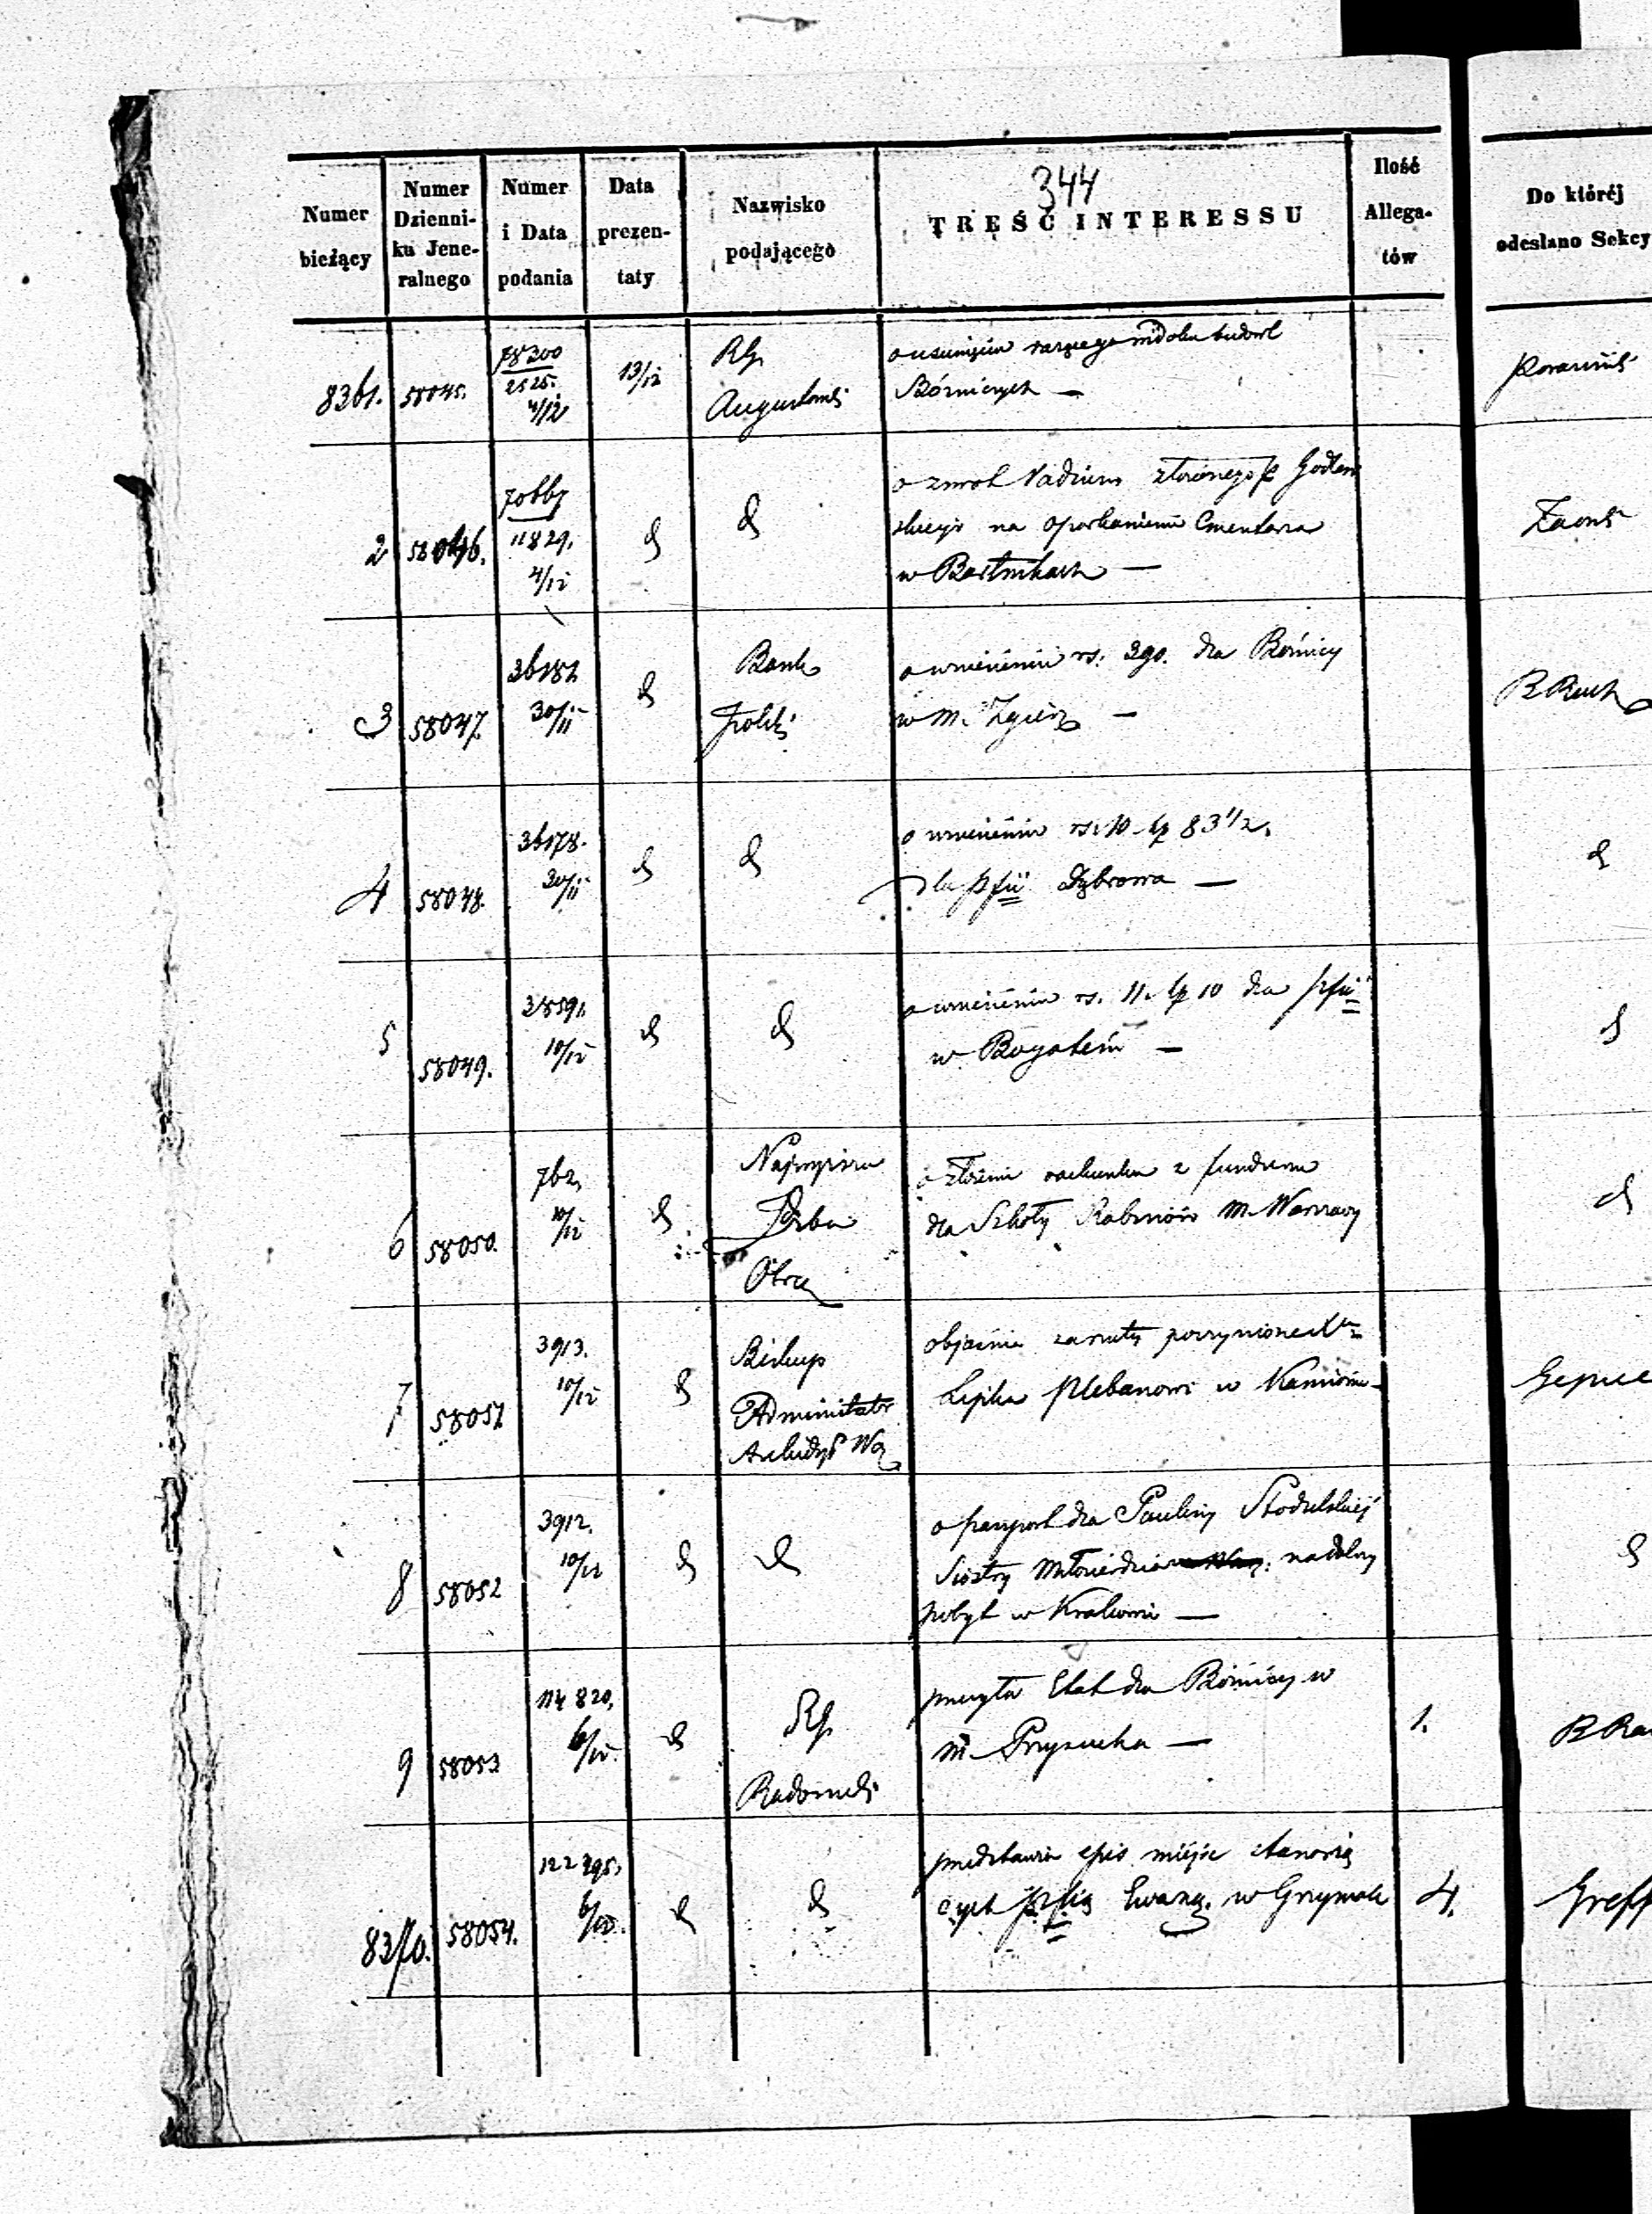 344
Numer bieżący
Numer Dzienni- ku Jene- ralnego
Numer i Data podania
Data prezen- taty
Nazwisko podającego
TREŚĆ INTERESSU
Ilość Allega- tów
Do któréj odesłano Sekcy
8361. 58045. 78300 2525. 4/12 13/12 RG. Augustowski
o usunięcie rażącego widoku budowl
Bóżniczych —
2 58046. 70667 11829. 4/12 d d
o zwrot Vadium złożonego p Godlew
skiego na oparkanienie Cmentarza
w Bartnikach —
Zaons
3 58047 36181 30/11 d Bank Polski
o wniesieniu rs: 390. dla Bóżnicy
w m. Zgierz —
4 58048. 36178. 30/11 d d
o wniesieniu rs. 10 kp 83 1/2.
dla pfii Dąbrowa —
d
5 58049. 10/12 d d
o wniesieniu rs. 11. kp 10 dla pfii
w Bogatem —
d
6 58050. 762, 10/12 d Najwyższa Izba Obra
o złożenie rachunku z funduszu
dla Szkoły Rabinów M. Warszawy
d
7 58051 3913. 10/12 d Biskup Administrator Archidyec Wa
objaśnia zarzuty poczynione
Lipka Plebanowi w Kamion
8 58052 3912. 10/12 d d
o paszport dla Pauliny Stodulskiej
Siostry Miłosierdzia na dalszy
pobyt w Krakowie —
d
9 58053 114820, 6/12. d RG. Radomski
przesyła Etat dla Bóżnicy w
m Przysucha —
1.
8370. 58054. 122295, 6/12. d d
przedstawia spis miejsc stanowią
cych pfią Ewang. w Grzymał
4.
Greff